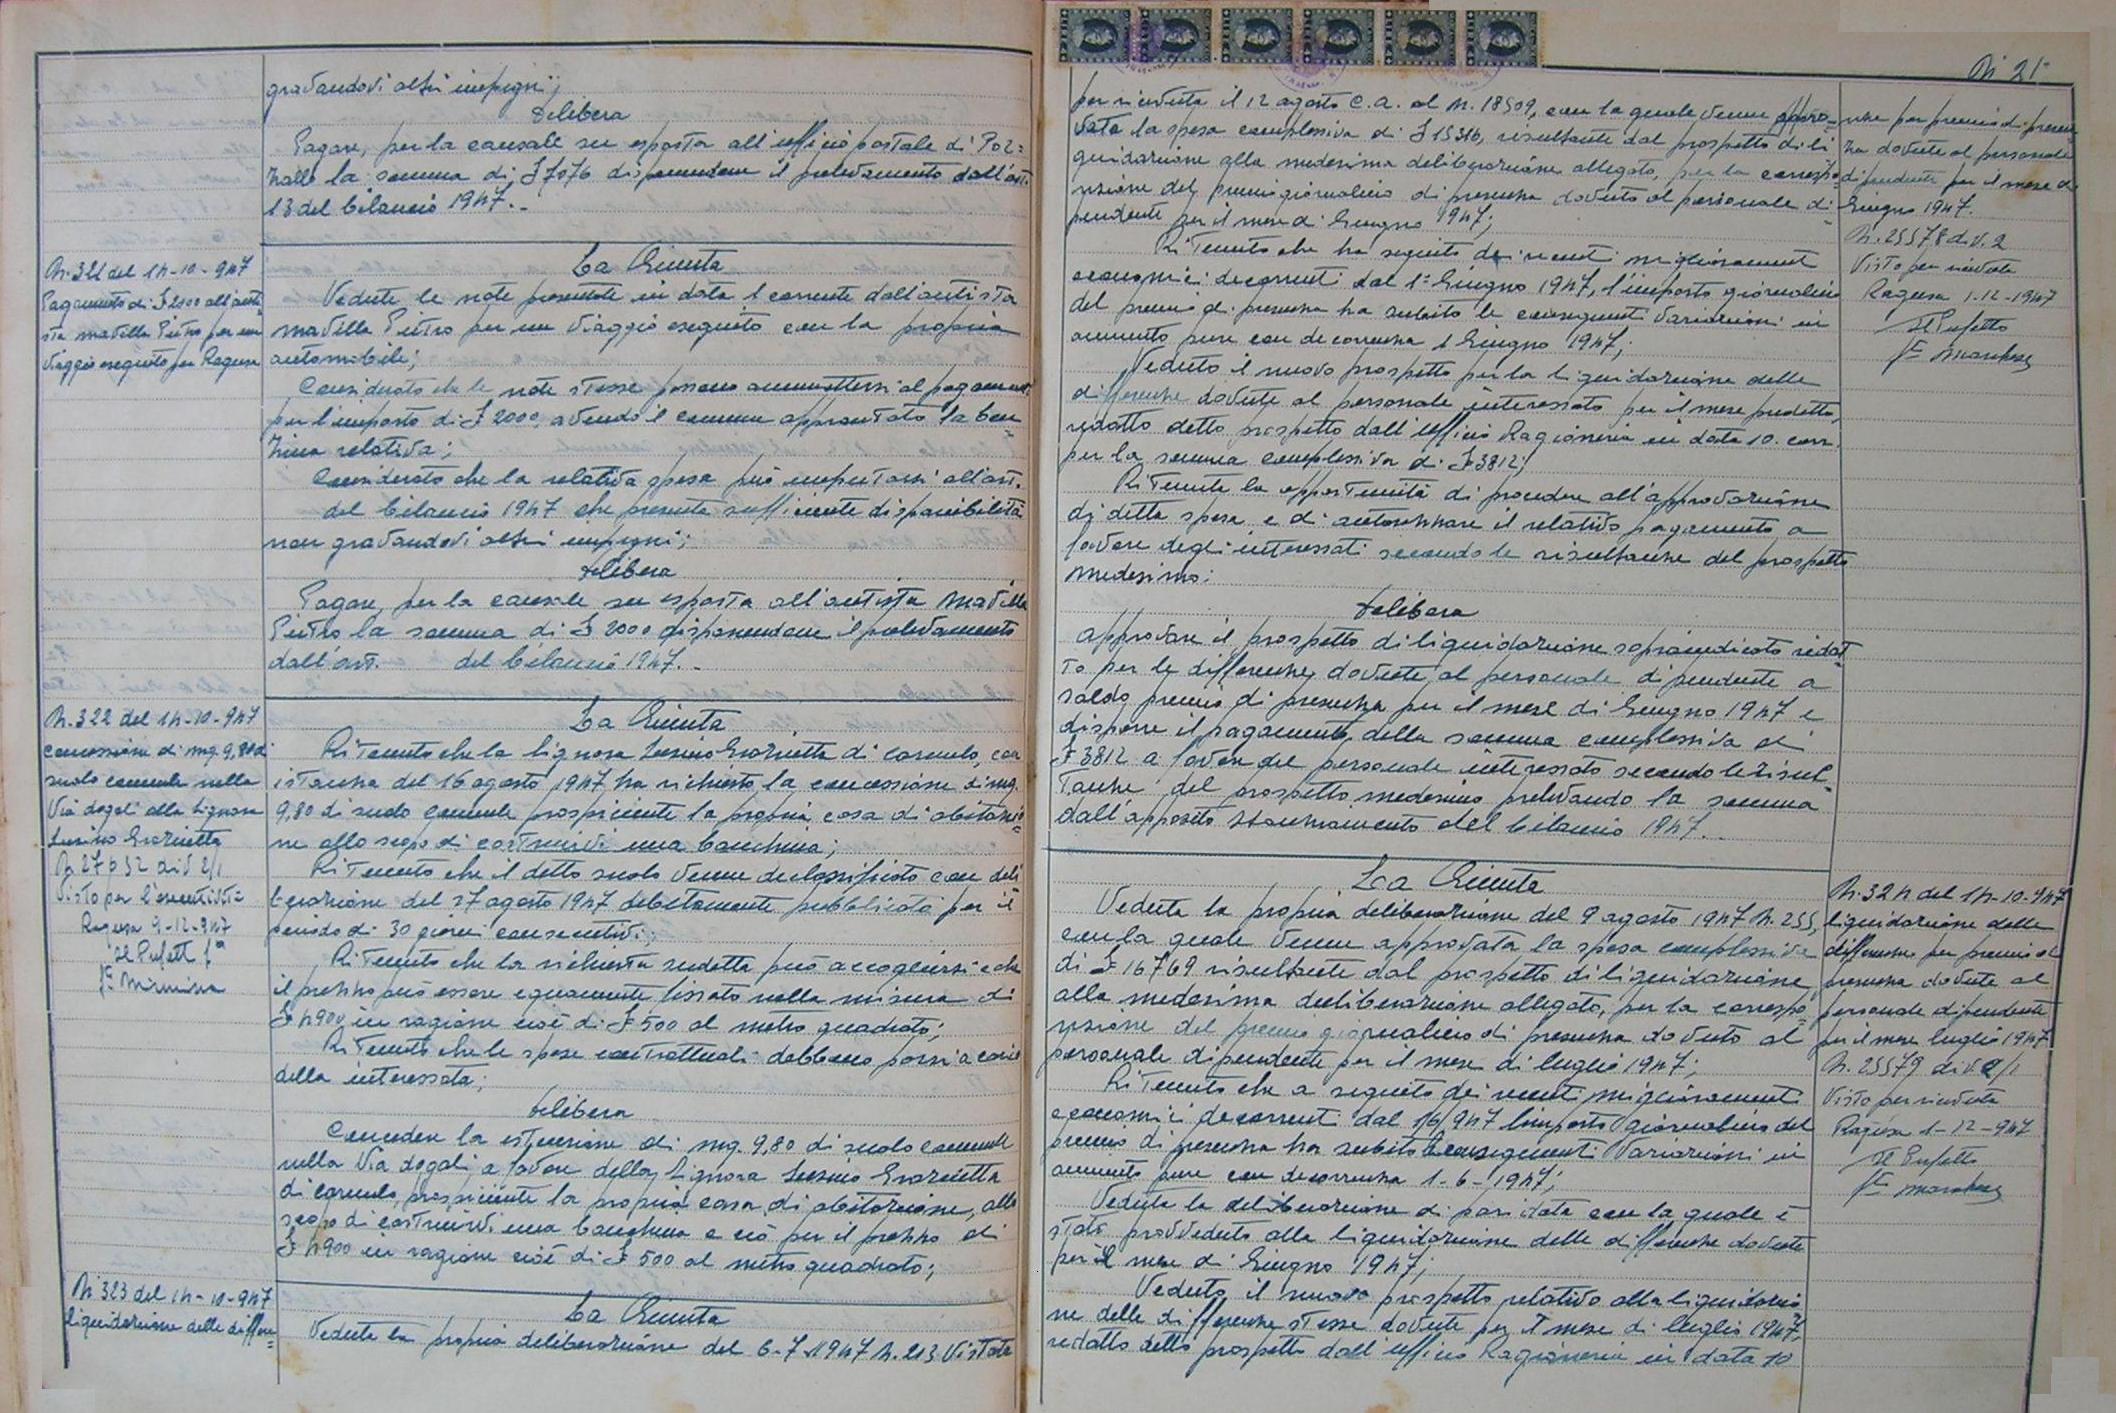 gravandovi altri impegni;
delibera
Pagare, per la causale su esposta all'ufficio postale di Poz=
zallo la somma di £ 7076 disponendone il prelevamento dall'art.
13 del bilancio 1947.-
N. 321 del 14-10-947
Pagamento di £ 2000 all'auti
sta Madilla Pietro per un
viaggio eseguito per Ragusa
La Giunta
Vedute le note presentate in data 1 corrente dall'autista
Madilla Pietro per un viaggio eseguito con la propria
automobile;
Considerato che le note stesse possono ammettersi al pagamento
per l'importo di £ 2000, avendo il comune approntato la ben
zina relativa;
Considerato che la relativa spesa può imputarsi all'art.
del bilancio 1947 che presenta sufficiente disponibilità
non gravandovi altri impegni;
delibera
Pagare, per la causale su esposta all'autista Madilla
Pietro la somma di £ 2000 disponendone il prelevamento
dall'art. del bilancio 1947.-
N. 322 del 14-10-947
concessione di mq. 9,80 di
suolo comunale nella
Via Dogali alla Signora
Susino Graziella
N. 27632 div 2/1
Visto per l'esecutività=
Ragusa 9-12-947
Il Prefetto
La Giunta
Ritenuto che la Signora Susino Graziella di Carmelo, con
istanza del 16 agosto 1947 ha richiesto la concessione di mq.
9,80 di suolo comunale prospiciente la propria casa di abitazio=
ne allo scopo di costruirvi una banchina;
Ritenuto che il detto suolo venne declassificato con deli
berazione del 27 agosto 1947 debitamente pubblicata per il
periodo di 30 giorni consecutivi;
Ritenuto che la richiesta sudetta può accogliersi e che
il prezzo può essere equamente fissato nella misura di
£ 4900 in ragione cioè di £ 500 al metro quadrato;
Ritenuto che le spese contrattuali debbano porsi a carico
della interessata;
delibera
Concedere la estensione di mq. 9,80 di suolo comunale
nella Via Dogali a favore della Signora Susino Graziella
di Carmelo, prospiciente la propria casa di abitazione, allo
scopo di costruirvi una banchina e ciò per il prezzo di
£ 4900 in ragione cioè di £ 500 al metro quadrato;
N. 323 del 14-10-947
liquidazione delle differen=
La Giunta
Veduta la propria deliberazione del 6-7-1947 N. 213 Vistata
N 21
per ricevuta il 12 agosto c.a. al N. 18509, con la quale venne appro=
vata la spesa complessiva di £ 15316, risultante dal prospetto di li
quidazione alla medesima deliberazione allegato, per la correspo=
nsione del premio giornaliero di presenza dovuto al personale di=
pendente per il mese di Giugno 1947;
Ritenuto che ha seguito dei recenti miglioramenti
economici decorrenti dal 1° Giugno 1947, l'importo giornaliero
del premio di presenza ha subito le conseguenti variazioni in
aumento pure con decorrenza 1 Giugno 1947;
Veduto il nuovo prospetto per la liquidazione delle
differenze dovute al personale interessato per il mese predetto,
redatto detto prospetto dall'ufficio Ragioneria in data 10 corr.
per la somma complessiva di £ 3812;
Ritenuta la opportunità di procedere all'approvazione
di detta spesa e di autorizzare il relativo pagamento a
favore degli interessati secondo le risultanze del prospetto
medesimo;
delibera
approvare il prospetto di liquidazione sopraindicato redat
to per le differenze dovute al personale dipendente a
saldo premio di presenza per il mese di Giugno 1947 e
disporre il pagamento della somma complessiva di
£ 3812 a favore del personale interessato secondo le risul=
tanze del prospetto medesimo prelevando la somma
dall'apposito stanziamento del bilancio 1947.-
nze per premio di presen
za dovute al personale
dipendente per il mese di
Giugno 1947.
N. 25578 div. 2
Visto per ricevuta
Ragusa 1-12-1947
Il Prefetto
La Giunta
Veduta la propria deliberazione del 9 agosto 1947 N. 255,
con la quale venne approvata la spesa complessiva
di £ 16769 risultante dal prospetto di liquidazione
alla medesima deliberazione allegato, per la correspo=
nsione del premio giornaliero di presenza dovuto al
personale dipendente per il mese di luglio 1947;
Ritenuto che a seguito dei recenti miglioramenti
economici decorrenti dal 1/6/947 l'importo giornaliero del
premio di presenza ha subito le conseguenti variazioni in
aumento pure con decorrenza 1-6-1947;
Veduta la deliberazione di pari data con la quale è
stato provveduto alla liquidazione delle differenze dovute
per il mese di Giugno 1947;
Veduto il nuovo prospetto relativo alla liquidazio
ne delle differenze stesse dovute per il mese di luglio 1947,
redatto detto prospetto dall'ufficio Ragioneria in data 10
N. 324 del 14-10-947
liquidazione delle
differenze per premio di
presenza dovute al
personale dipendente
per il mese luglio 1947
N. 25579 div. 2/1
Visto per ricevuta
Ragusa 1-12-947
Il Prefetto